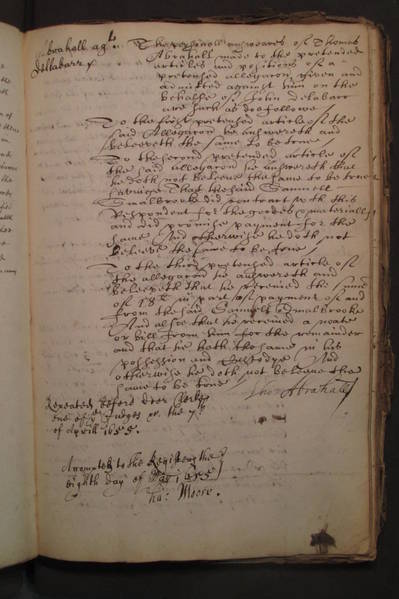 Abrahall agt
Dellabarr
The personall answeares of Thomas
Abrahall made to the pretended
articles and positions of a
pretensed allegacon given and
admitted against him on the
behalfe of John Delabarr
are such as doe followe
To the first pretensed article of the
said Allegacon he answereth and
beleeveth the same to be true
To the second pretended article of
the said allegacon he answereth that
he doth not beleeve the same to be true
That the said Samuell
Smalbrooke did contract with this
Respondent for the goodes materially
and did promise payment for the
same And otherwise he doth not
beleeve the same to be true
To the third pretensed article of
the allegacon he answereth and
beleeveth that he received the summe
of 18 li in part of payment of and
from the said Samuell Smalbrooke
And alsoe that he received a noate
or bill from him for the remainder
and that he hath the same in his
possession and Custodye And
otherwise he doth not beleeve the
same to be true
Tho: Abrahall
Repeated before Doctor
one of ye Judges on the 7th
of Aprill 1655.
Attempted to the Register the
eighth day of 1655
Tho: Moore.